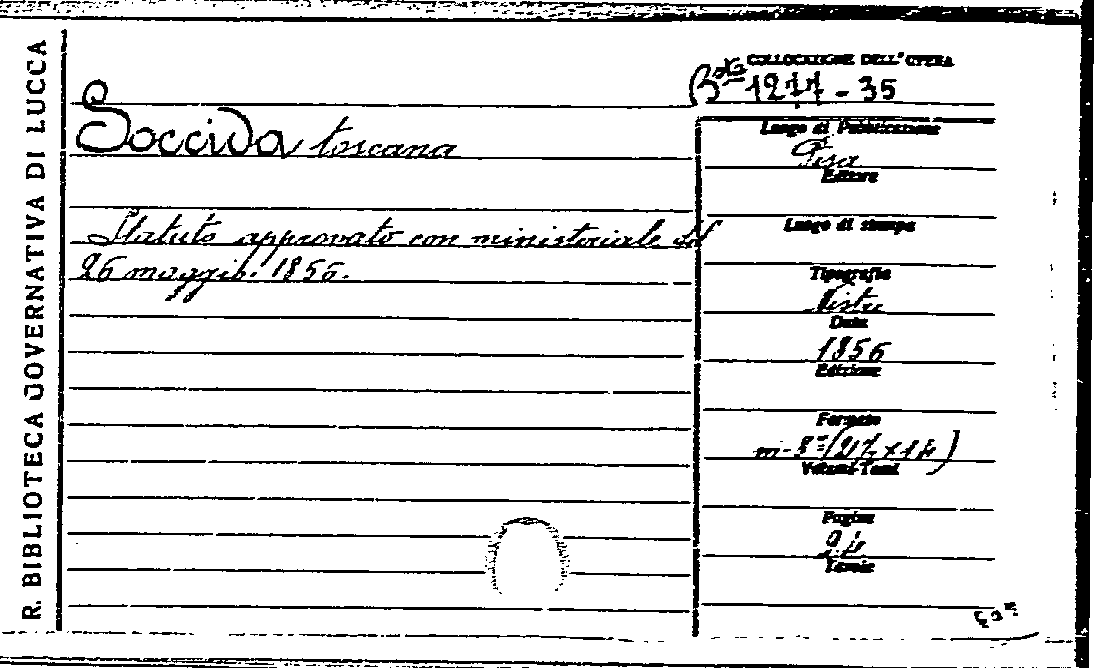 R. BIBLIOTECA GOVERNATIVA DI LUCCA
COLLOCAZIONE DELL'OPERA
Bta 1277 - 35
Soccida toscana
Luogo di Pubblicazione
Pisa
Editore
Statuto approvato con ministeriale del
26 maggio 1856.
Luogo di stampa
Tipografia
Nistri
Data
1856
Edizione
Formato
in-8°
Volumi-Tomi
Pagine
24
Tavole